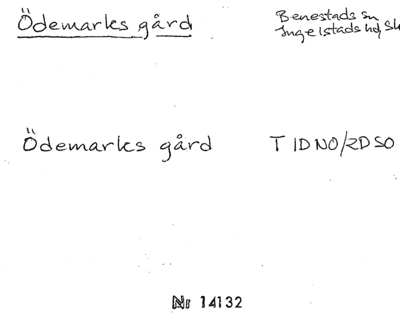 Ödemarks gård
Benestads sn
Ingelstads hd, Sk
Ödemarks gård T 1DNO/2DSO
Nr 14132